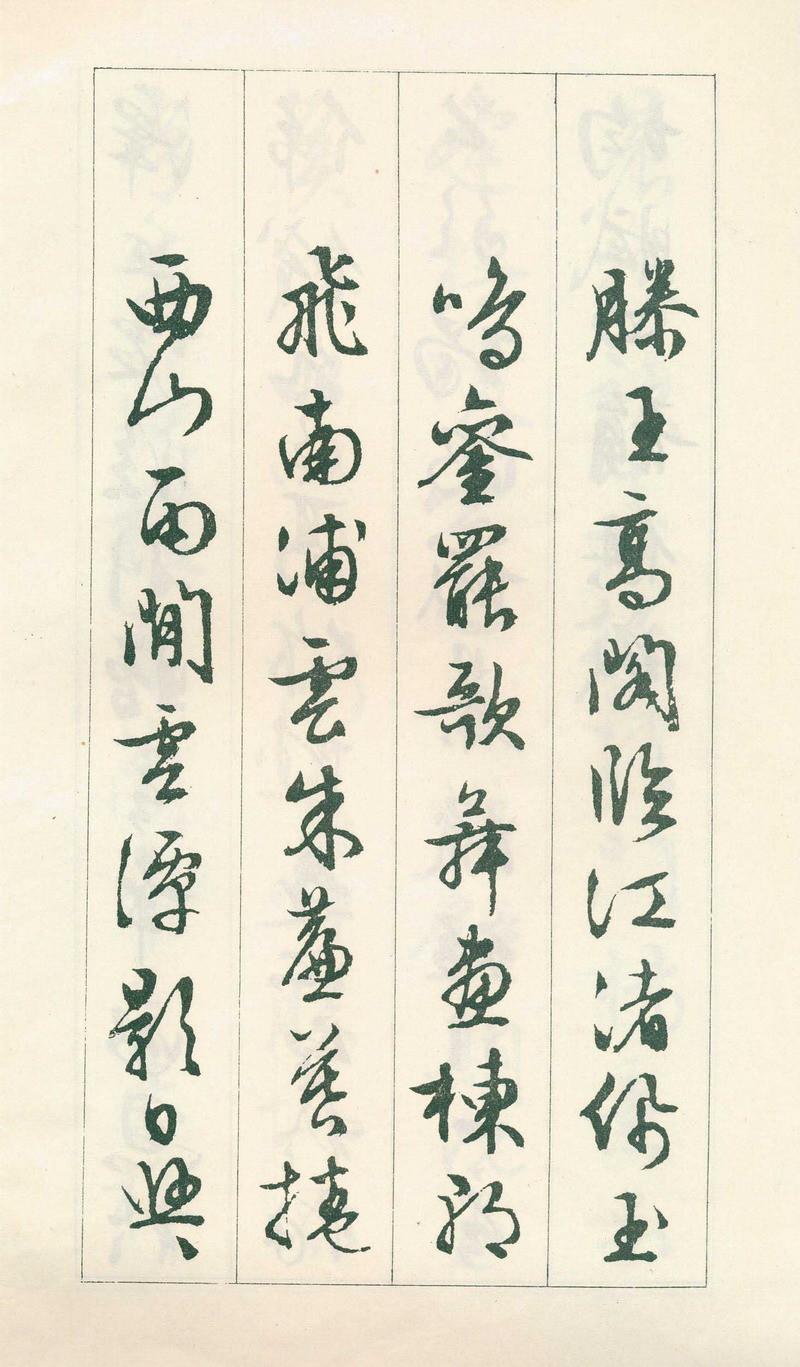 滕王高閣臨江渚佩玉
鳴鑾罷歌舞畫棟朝
飛南浦雲朱簾暮捲
西山雨閒雲潭影日悠〻